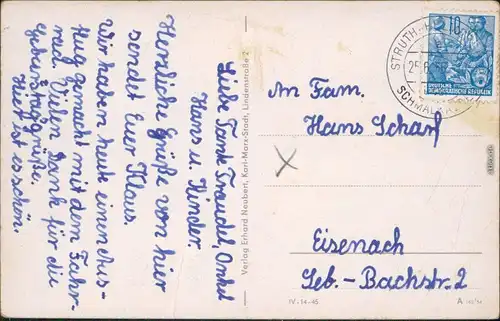 Liebe Tante Traudel, Onkel
Hans u. Kinder.
Herzliche Grüße von hier
sendet Eur Klaus.
Wir haben heute einen Aus-
flug gemacht mit dem Fahr-
rad. Vielen Dank für die
Geburtstagsgrüße.
Hier ist es schön.
Verlag Erhard Neubert, Karl-Marx-Stadt, Lindenstraße 2
STRUTH-
SCHMALK
10
DEUTSCHE
DEMOKRATISCHE REPUBLIK
An Fam.
Hans Scharf
Eisenach
Seb.-Bachstr. 2
IV-14-45
A